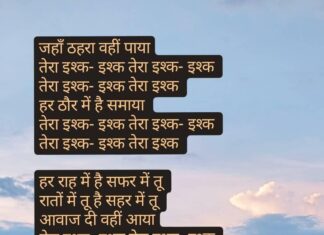 जहाँ ठहरा वहीं पाया
तेरा इश्क- इश्क तेरा इश्क- इश्क
तेरा इश्क- इश्क तेरा इश्क
हर ठौर में है समाया
तेरा इश्क- इश्क तेरा इश्क- इश्क
तेरा इश्क- इश्क तेरा इश्क
हर राह में है सफर में तू
रातों में तू है सहर में तू
आवाज दी वहीं आया